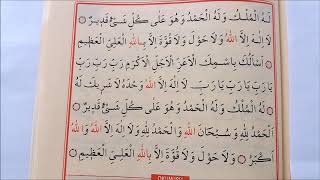 لَهُ الْمُلْكُ وَلَهُ الْحَمْدُ وَهُوَ عَلٰى كُلِّ شَيْءٍ قَدِيرٌ
لَا اِلٰهَ اِلَّا اللهُ وَلَا حَوْلَ وَلَا قُوَّةَ اِلَّا بِاللهِ الْعَلِيِّ الْعَظِيمِ
اَسْاَلُكَ بِاسْمِكَ الْاَعَزِّ الْاَجَلِّ الْاَكْرَمِ رَبِّ رَبِّ
يَا رَبِّ يَا رَبِّ يَا رَبِّ لَا اِلٰهَ اِلَّا اللهُ وَحْدَهُ لَا شَرِيكَ لَهُ
لَهُ الْمُلْكُ وَلَهُ الْحَمْدُ وَهُوَ عَلٰى كُلِّ شَيْءٍ قَدِيرٌ
اَلْحَمْدُ لِلّٰهِ وَسُبْحَانَ اللهِ وَالْحَمْدُ لِلّٰهِ وَلَا اِلٰهَ اِلَّا اللهُ وَاللهُ
اَكْبَرُ وَلَا حَوْلَ وَلَا قُوَّةَ اِلَّا بِاللهِ الْعَلِيِّ الْعَظِيمِ